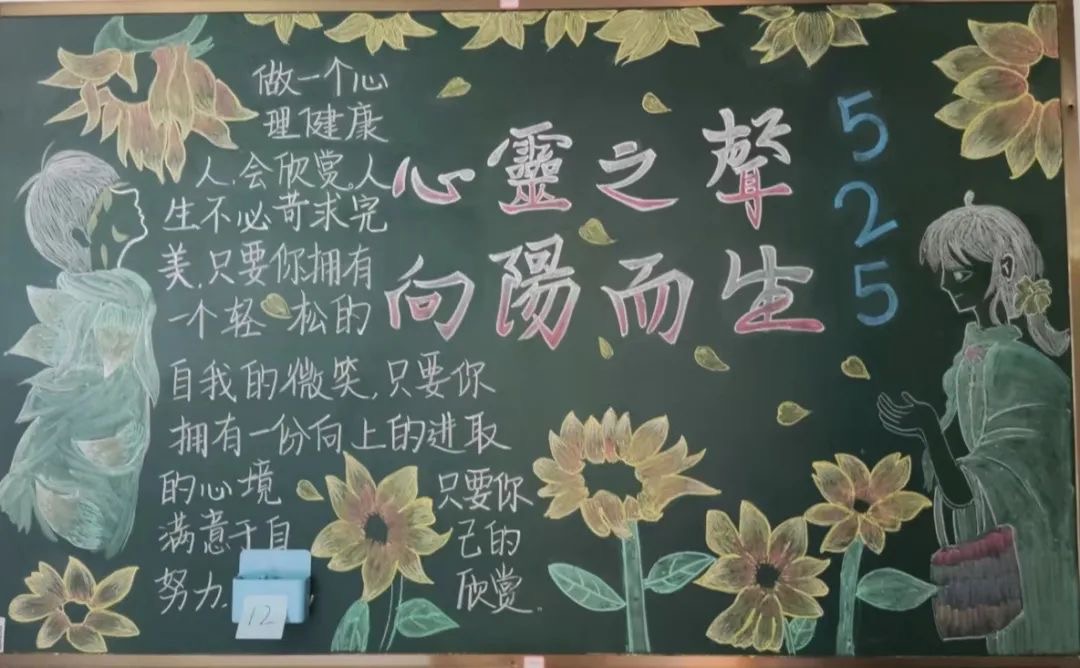 做一个心
理健康
人.会欣赏.人
生不必苛求完
美.只要你拥有
一个轻松的
自我的微笑.只要你
拥有一份向上的进取
的心境 只要你
满意于自己的
努力. 欣赏.
心靈之聲
向陽而生
5
2
5
12